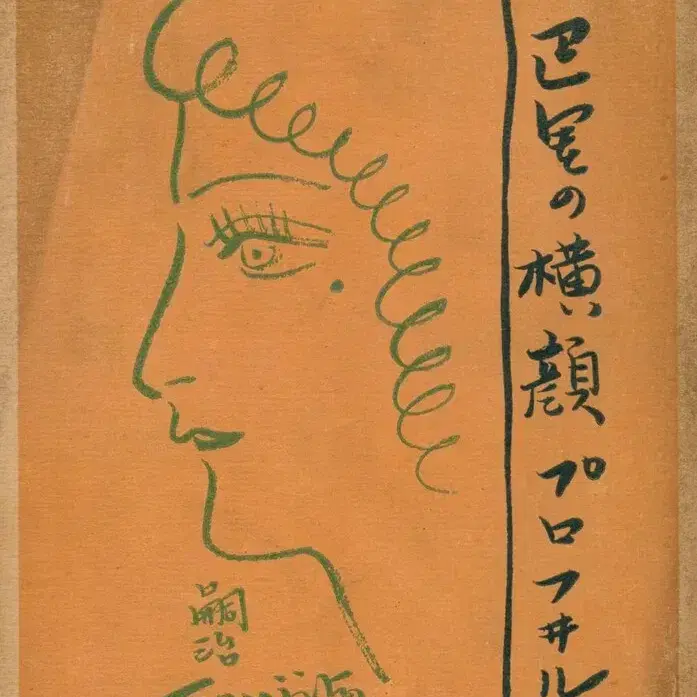 巴里の横顔 プロフヰル
嗣治